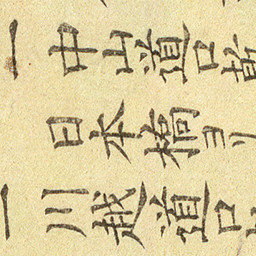 一中山道口
日本橋ヨリ
一川越道口